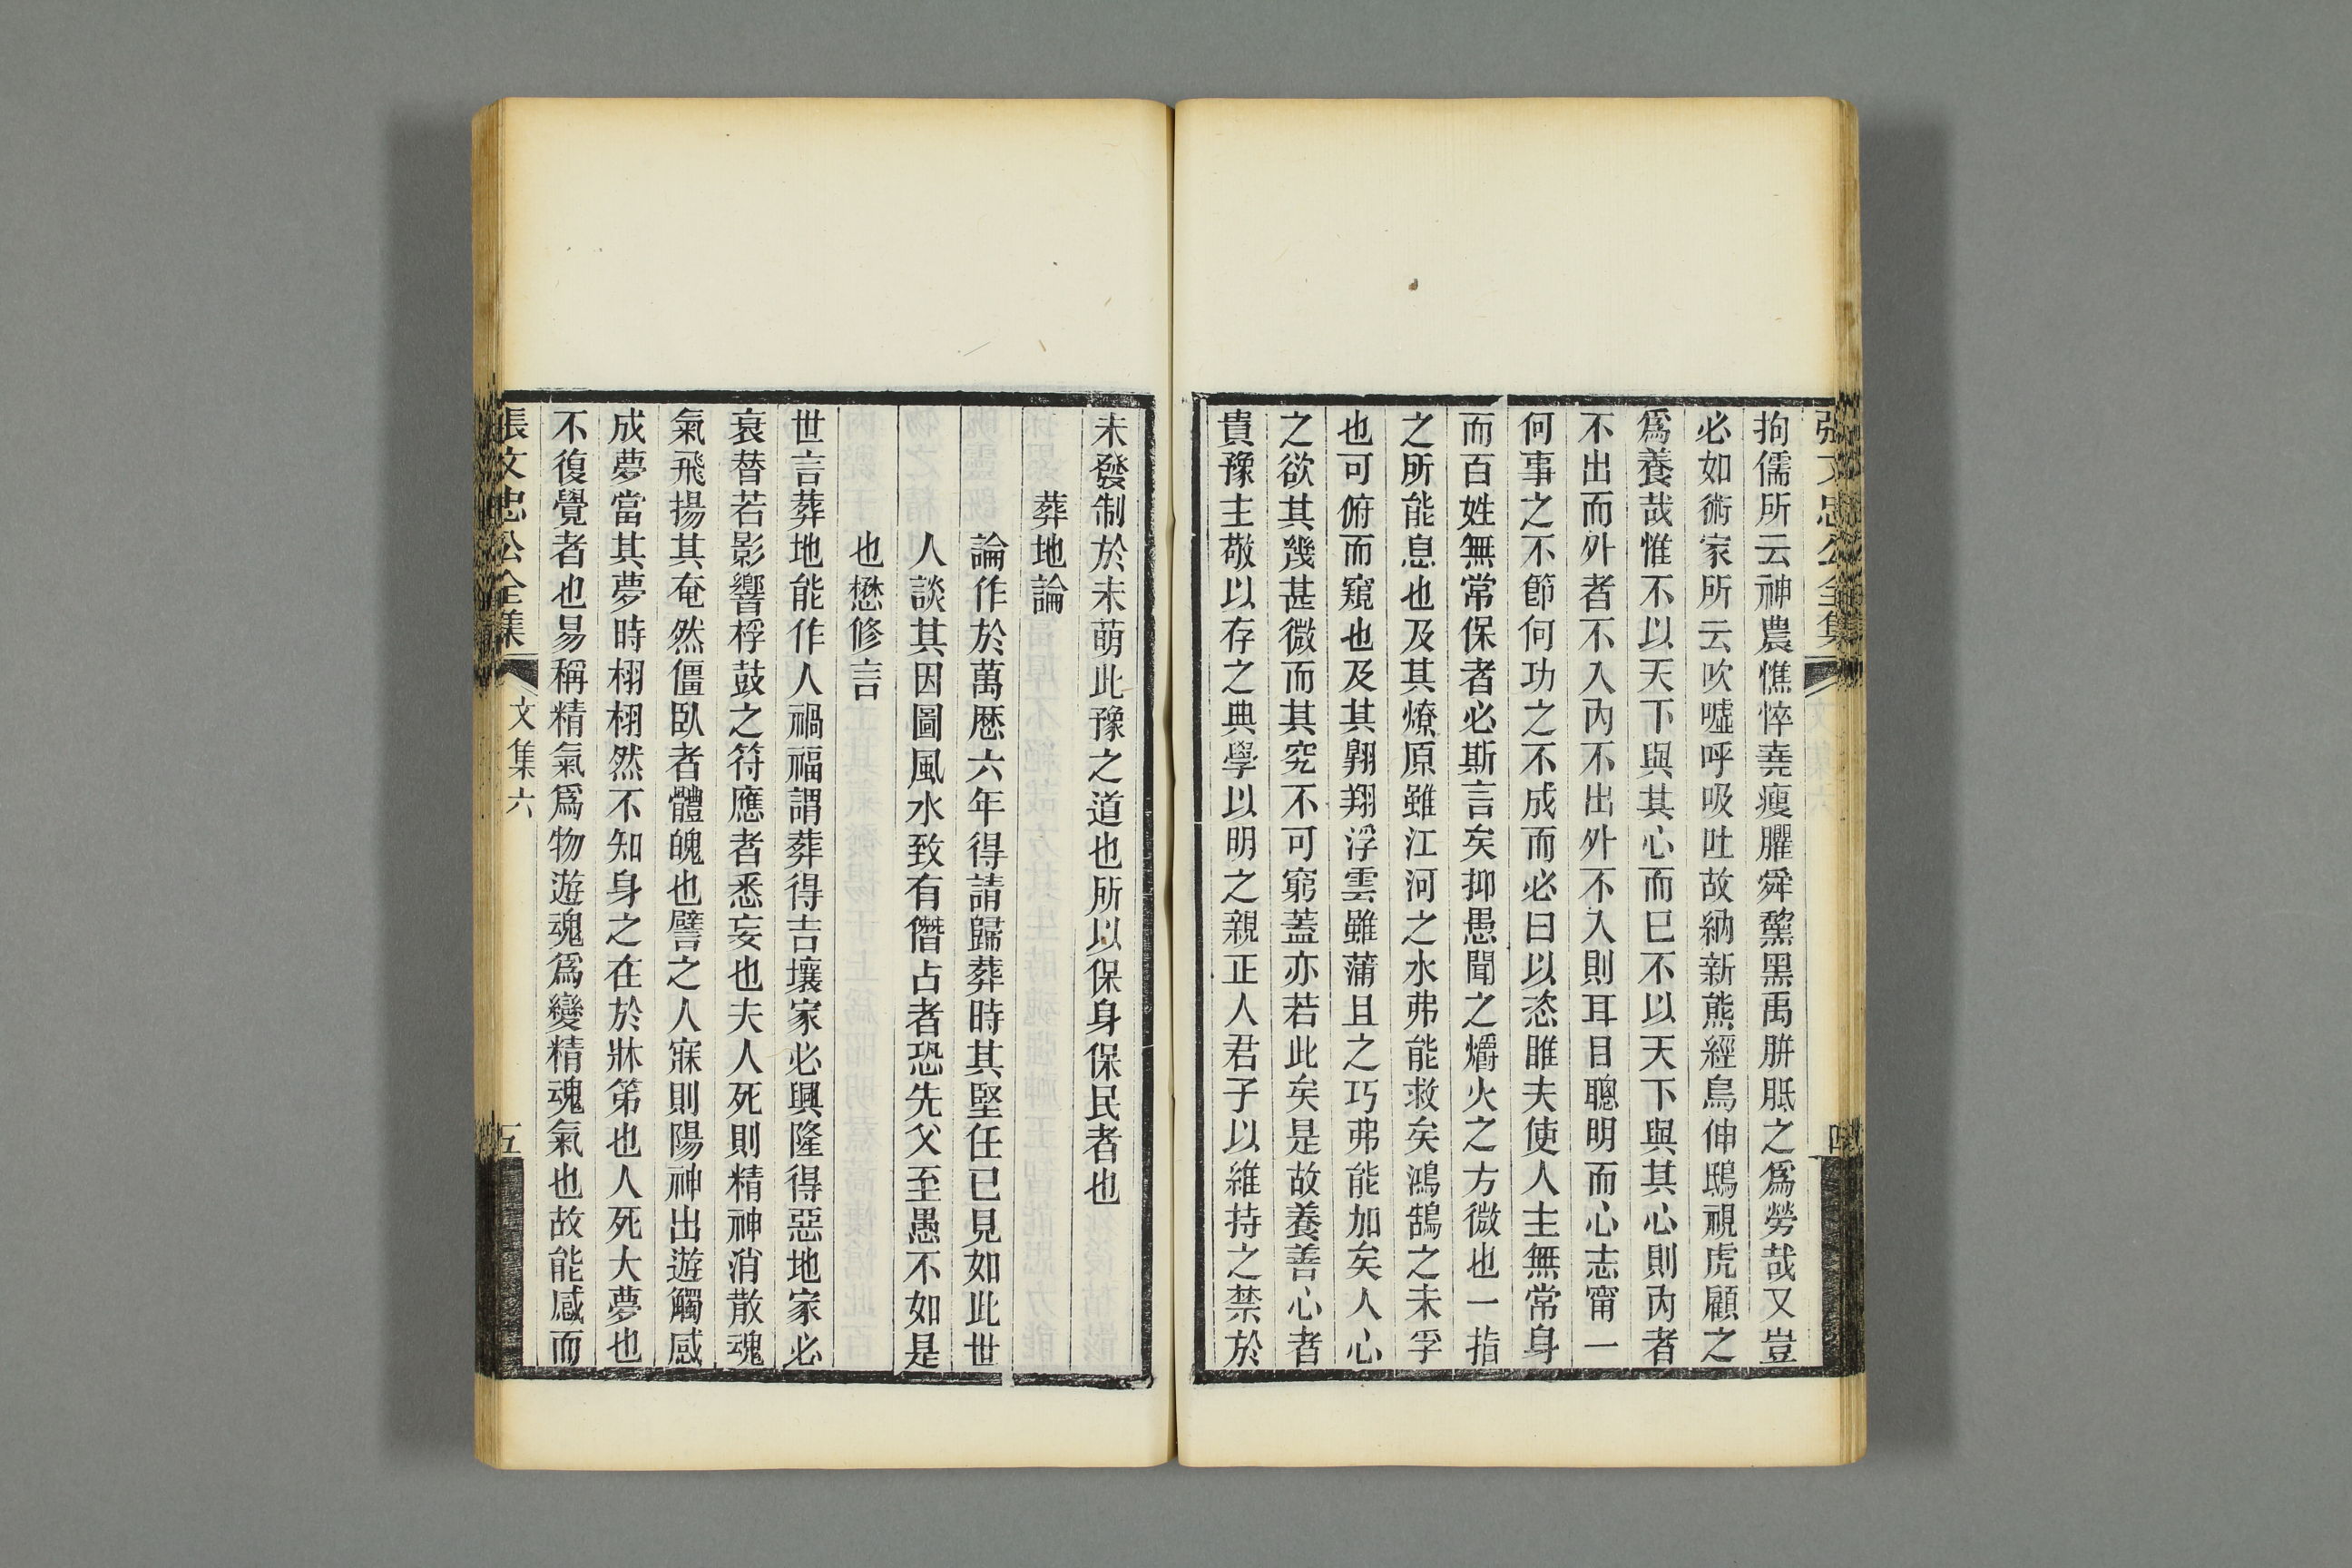 張文忠公全集
四
拘儒所云神農憔悴堯瘦臞舜黧黑禹胼胝之爲勞哉又豈
必如術家所云吹噓呼吸吐故納新熊經鳥伸鴟視虎顧之
爲養哉惟不以天下與其心而已不以天下與其心則內者
不出而外者不入內不出外不入則耳目聰明而心志甯一
何事之不節何功之不成而必曰以恣睢夫使人主無常身
而百姓無常保者必斯言矣抑愚聞之爝火之方微也一指
之所能息也及其燎原雖江河之水弗能救矣鴻鵠之未孚
也可俯而窺也及其翱翔浮雲雖蒲且之巧弗能加矣人心
之欲其幾甚微而其究不可窮蓋亦若此矣是故養善心者
貴豫主敬以存之典學以明之親正人君子以維持之禁於
未發制於未萌此豫之道也所以保身保民者也
葬地論
論作於萬厯六年得請歸葬時其堅任已見如此世
人談其因圖風水致有僭占者恐先父至愚不如是
也懋修言
世言葬地能作人禍福謂葬得吉壤家必興隆得惡地家必
衰替若影響桴鼓之符應者悉妄也夫人死則精神消散魂
氣飛揚其奄然僵臥者體魄也譬之人寐則陽神出遊觸感
成夢當其夢時栩栩然不知身之在於牀笫也人死大夢也
不復覺者也易稱精氣爲物遊魂爲變精魂氣也故能感而
張文忠公全集
文集六
五